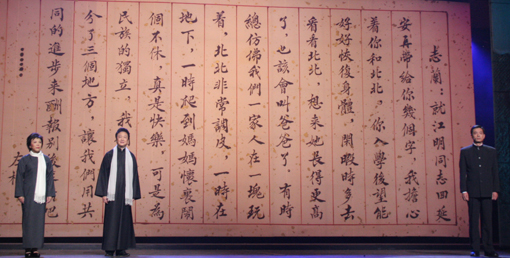 志蘭：就江明同志回延
安帶給你幾個字，我擔心
着你和北北。你入學後望能
好好恢復身體，閑暇時多去
看看北北，想來她長得更高
了，也該會叫爸爸了，有時
總仿佛我們一家人在一塊玩
着，北北非常調皮，一時在
地下，一時爬到媽媽懷裏鬧
個不休，真是快樂。可是為
民族的獨立，我
分了三個地方，讓我們用共
同的進步來酬報別吧
……